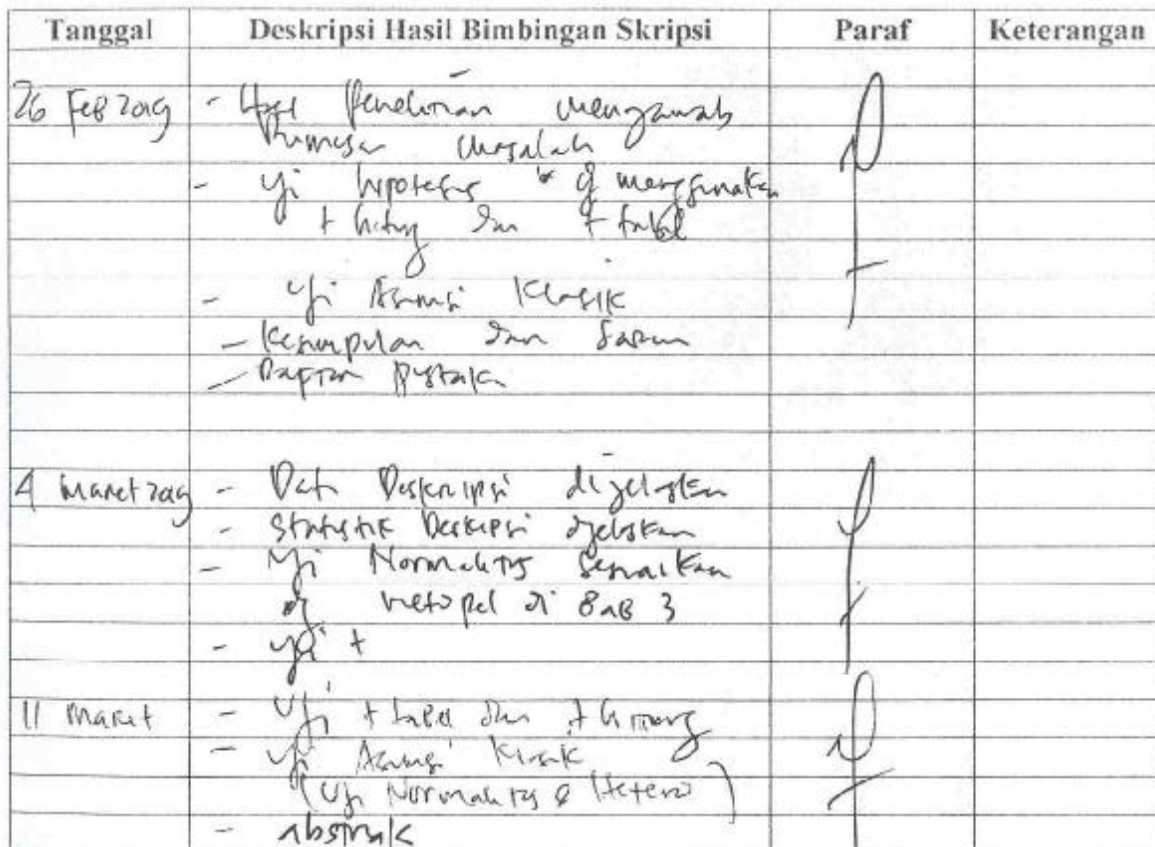 Tanggal Deskripsi Hasil Bimbingan Skripsi Paraf Keterangan
26 Feb 2019 - Hasil Penelitian menjawab
Rumusan masalah
- Uji hipotesis menggunakan
t hitung dan t tabel
- Uji Asumsi Klasik
- Kesimpulan dan Saran
- Daftar Pustaka
4 Maret 2019 - Data Deskripsi dijelaskan
- Statistik Deskripsi dijelaskan
- Uji Normalitas sesuaikan
dg metopel di BAB 3
- Uji t
11 Maret - Uji t tabel dan t hitung
- Uji Asumsi Klasik
(Uji Normalitas & Hetero)
- abstrak